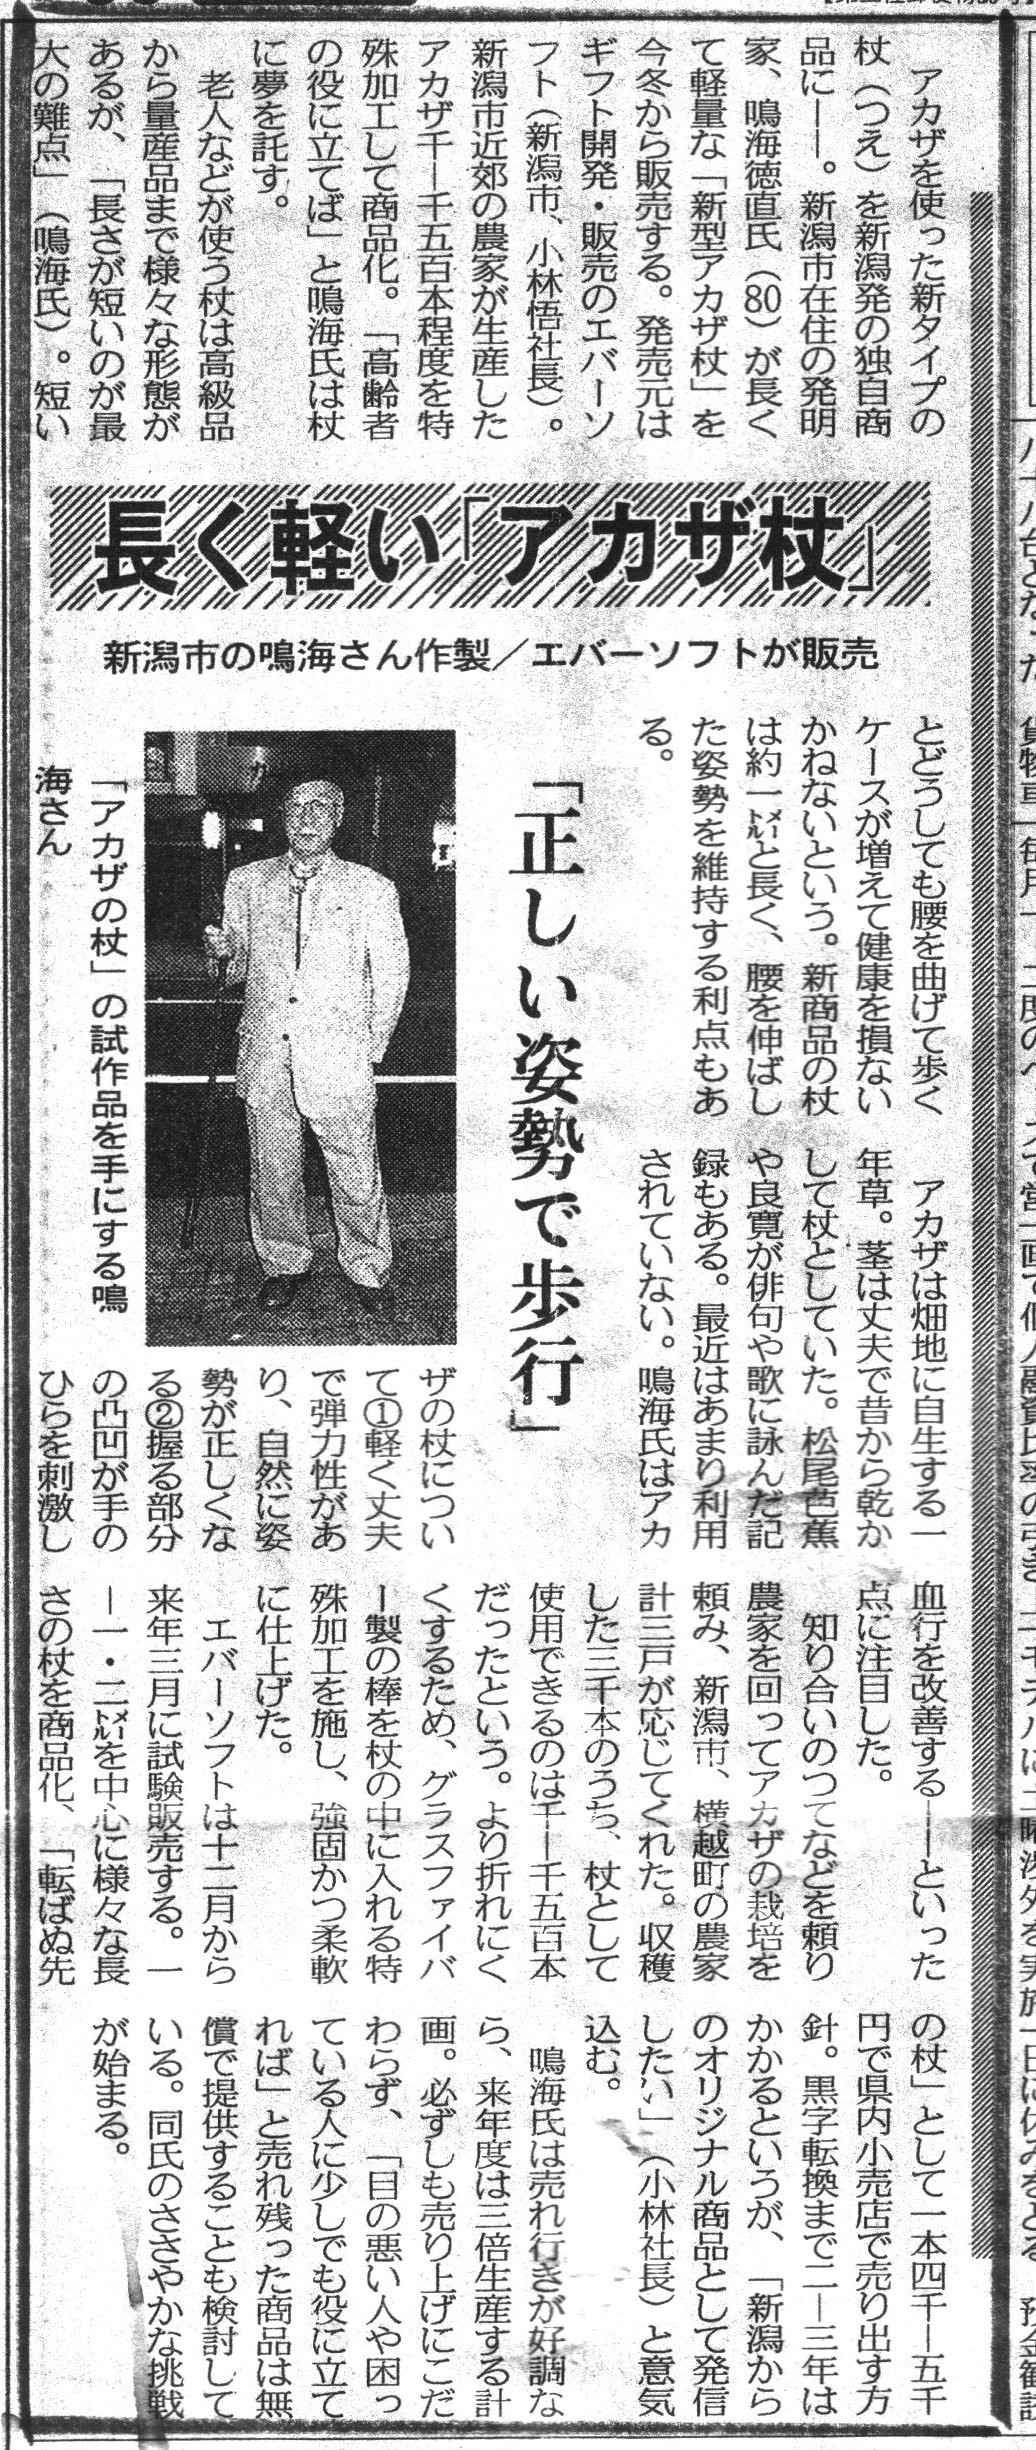 長く軽い「アカザ杖」
新潟市の鳴海さん作製／エバーソフトが販売
「正しい姿勢で歩行」
アカザを使った新タイプの
杖（つえ）を新潟発の独自商
品に――。新潟市在住の発明
家、鳴海徳直氏（80）が長く
て軽量な「新型アカザ杖」を
今冬から販売する。発売元は
ギフト開発・販売のエバーソ
フト（新潟市、小林悟社長）。
新潟市近郊の農家が生産した
アカザ千―千五百本程度を特
殊加工して商品化。「高齢者
の役に立てば」と鳴海氏は杖
に夢を託す。
老人などが使う杖は高級品
から量産品まで様々な形態が
あるが、「長さが短いのが最
大の難点」（鳴海氏）。短い
とどうしても腰を曲げて歩く
ケースが増えて健康を損ない
かねないという。新商品の杖
は約一㍍と長く、腰を伸ばし
た姿勢を維持する利点もあ
る。
アカザは畑地に自生する一
年草。茎は丈夫で昔から乾か
して杖としていた。松尾芭蕉
や良寛が俳句や歌に詠んだ記
録もある。最近はあまり利用
されていない。鳴海氏はアカ
ザの杖につい
て①軽く丈夫
で弾力性があ
り、自然に姿
勢が正しくな
る②握る部分
の凸凹が手の
ひらを刺激し
血行を改善する――といった
点に注目した。
知り合いのつてなどを頼り
農家を回ってアカザの栽培を
頼み、新潟市、横越町の農家
計三戸が応じてくれた。収穫
した三千本のうち、杖として
使用できるのは千―千五百本
だったという。より折れにく
くするため、グラスファイバ
ー製の棒を杖の中に入れる特
殊加工を施し、強固かつ柔軟
に仕上げた。
エバーソフトは十二月から
来年三月に試験販売する。一
―一・二㍍を中心に様々な長
さの杖を商品化、「転ばぬ先
の杖」として一本四千―五千
円で県内小売店で売り出す方
針。黒字転換まで二―三年は
かかるというが、「新潟から
のオリジナル商品として発信
したい」（小林社長）と意気
込む。
鳴海氏は売れ行きが好調な
ら、来年度は三倍生産する計
画。必ずしも売り上げにこだ
わらず、「目の悪い人や困っ
ている人に少しでも役に立て
れば」と売れ残った商品は無
償で提供することも検討して
いる。同氏のささやかな挑戦
が始まる。
「アカザの杖」の試作品を手にする鳴
海さん